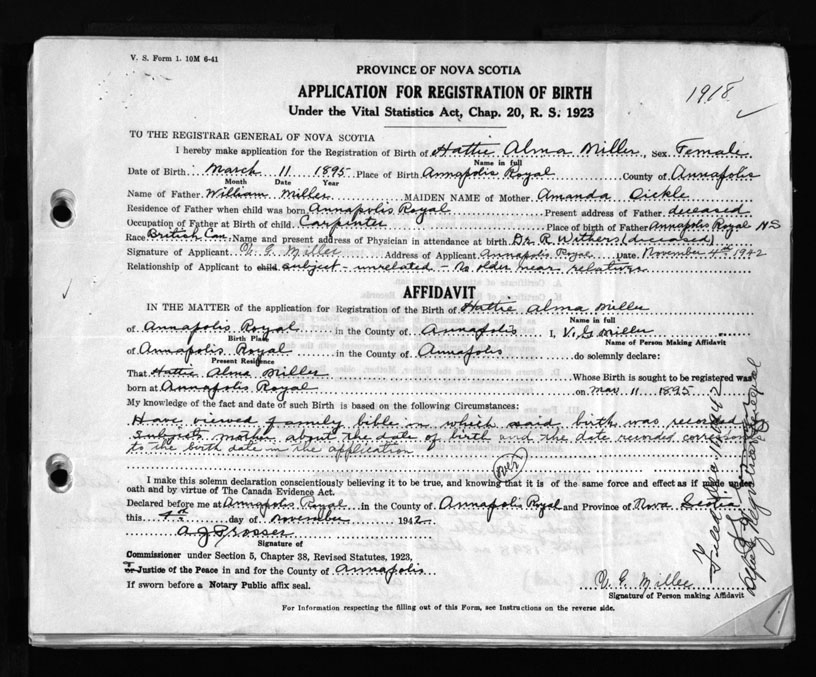 V. S. Form 1. 10M 6-41
PROVINCE OF NOVA SCOTIA
APPLICATION FOR REGISTRATION OF BIRTH
Under the Vital Statistics Act, Chap. 20, R. S. 1923
1918
TO THE REGISTRAR GENERAL OF NOVA SCOTIA
I hereby make application for the Registration of Birth of Hattie Alma Miller, Sex Female
Name in full
Date of Birth March 11 1895 Place of Birth Annapolis Royal County of Annapolis
Month Date Year
Name of Father William Miller MAIDEN NAME of Mother Amanda
Residence of Father when child was born Annapolis Royal Present address of Father deceased
Occupation of Father at Birth of child Carpenter Place of birth of Father Annapolis Royal NS
Race British Can. Name and present address of Physician in attendance at birth Dr. R. Withers (deceased)
Signature of Applicant V. G. Miller Address of Applicant Annapolis Royal Date November 4th 1942
Relationship of Applicant to child subject - unrelated - no older near relatives
AFFIDAVIT
IN THE MATTER of the application for Registration of the Birth of Hattie Alma Miller
Name in full
of Annapolis Royal in the County of Annapolis I, V. G. Miller
Birth Place Name of Person Making Affidavit
of Annapolis Royal in the County of Annapolis do solemnly declare:
Present Residence
That Hattie Alma Miller Whose Birth is sought to be registered was
born at Annapolis Royal on Mar 11 1895
My knowledge of the fact and date of such Birth is based on the following Circumstances:
Have viewed family bible in which said birth was recorded
subjects mother about the date of birth and the date
to the birth date in the application
over
I make this solemn declaration conscientiously believing it to be true, and knowing that it is of the same force and effect as if made under
oath and by virtue of The Canada Evidence Act.
Declared before me at Annapolis Royal in the County of Annapolis Royal and Province of Nova Scotia
this day of November 1942
Signature of
Commissioner under Section 5, Chapter 38, Revised Statutes, 1923,
or Justice of the Peace in and for the County of Annapolis
If sworn before a Notary Public affix seal.
V. G. Miller
Signature of Person making Affidavit
For Information respecting the filling out of this Form, see Instructions on the reverse side.
Filed 1942